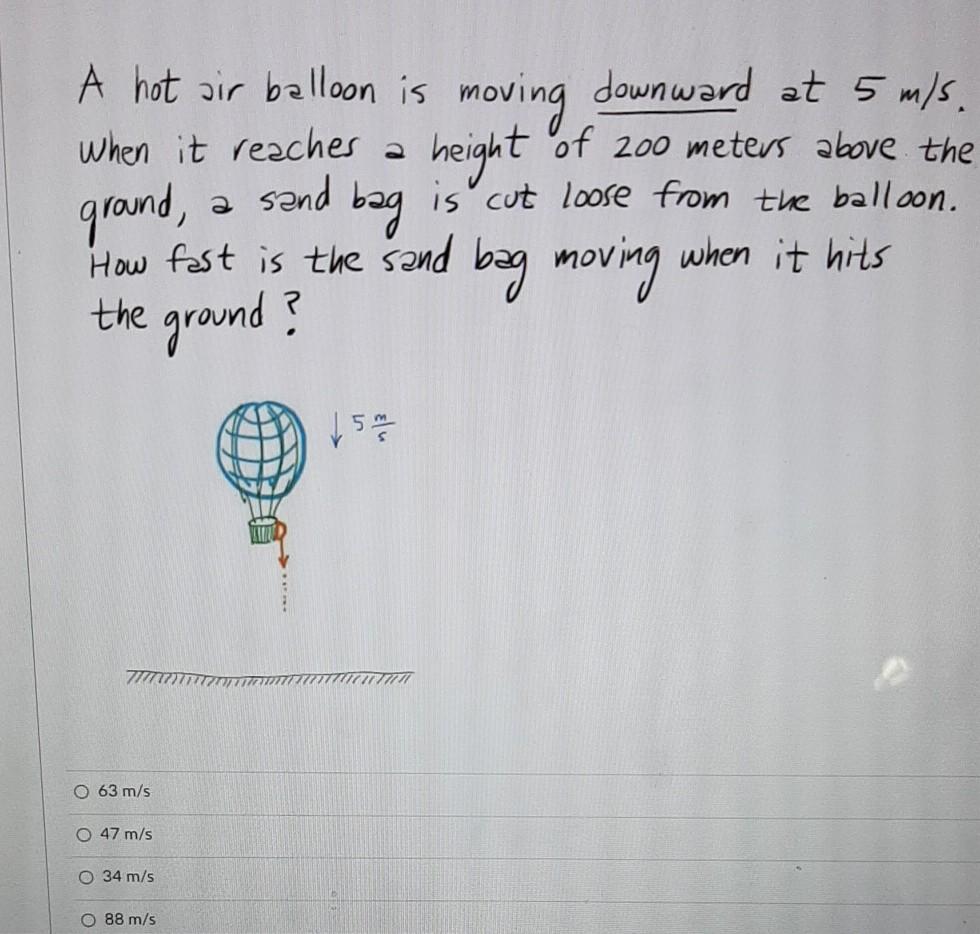 A hot air balloon is moving downward at 5 m/s.
When it reaches a height of 200 meters above the
ground, a sand bag is cut loose from the balloon.
How fast is the sand bag moving when it hits
the ground?
↓ 5 m/s
63 m/s
47 m/s
34 m/s
88 m/s